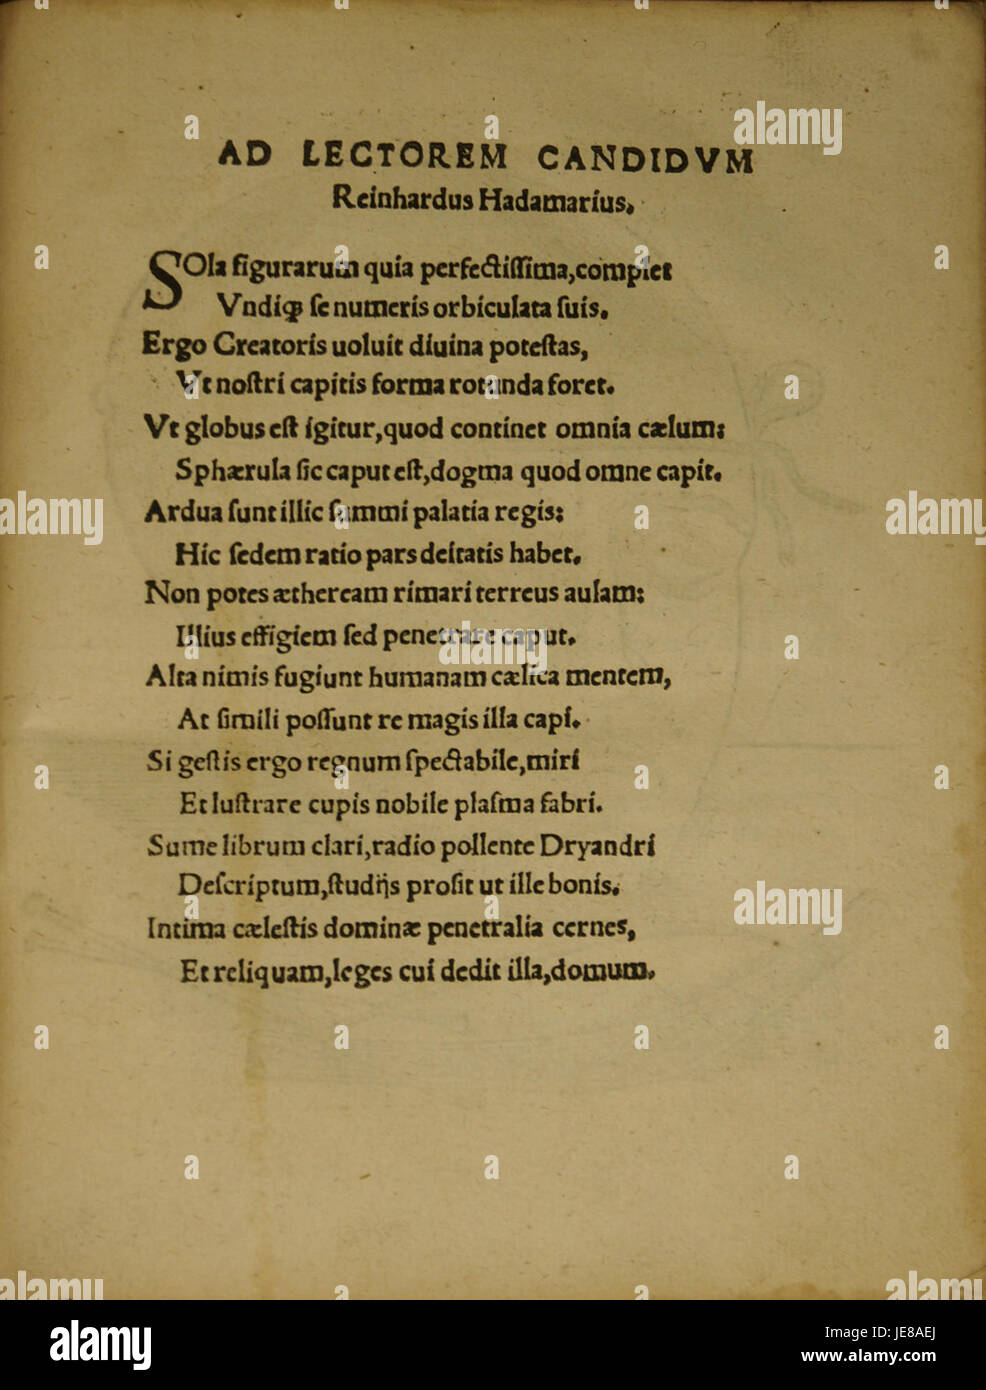 AD LECTOREM CANDIDVM
Reinhardus Hadamarius.
SOla figurarum quia perfectiſſima, complet
Vndiqꝫ ſe numeris orbiculata ſuis.
Ergo Creatoris uoluit diuina poteſtas,
Vt noſtri capitis forma rotunda foret.
Vt globus eſt igitur, quod continet omnia cælum:
Sphærula ſic caput eſt, dogma quod omne capit.
Ardua ſunt illic ſummi palatia regis:
Hic ſedem ratio pars deitatis habet.
Non potes ætheream rimari terreus aulam:
Illius effigiem ſed penetrare caput.
Alta nimis fugiunt humanam cælica mentem,
At ſimili poſſunt re magis illa capi.
Si geſtis ergo regnum ſpectabile, miri
Et luſtrare cupis nobile plaſma fabri.
Sume librum clari, radio pollente Dryandri
Deſcriptum, ſtudijs proſit ut ille bonis.
Intima cæleſtis dominæ penetralia cernes,
Et reliquam, leges cui dedit illa, domum.
alamy
alamy
alamy
alamy
alamy
alamy
alamy
alamy
Image ID: JE8AEJ
www.alamy.com